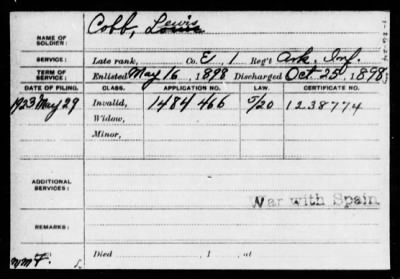 Cobb, Lewis
NAME OF SOLDIER:
SERVICE: Late rank, Co. E, 1 Reg't Ark. Inf.
TERM OF SERVICE: Enlisted May 16, 1898 Discharged Oct 25, 1898
DATE OF FILING. CLASS. APPLICATION NO. LAW. CERTIFICATE NO.
1923 May 29 Invalid, 1484466 1238774
Widow,
Minor,
ADDITIONAL SERVICES:
War with Spain.
REMARKS:
Died , 1 , at